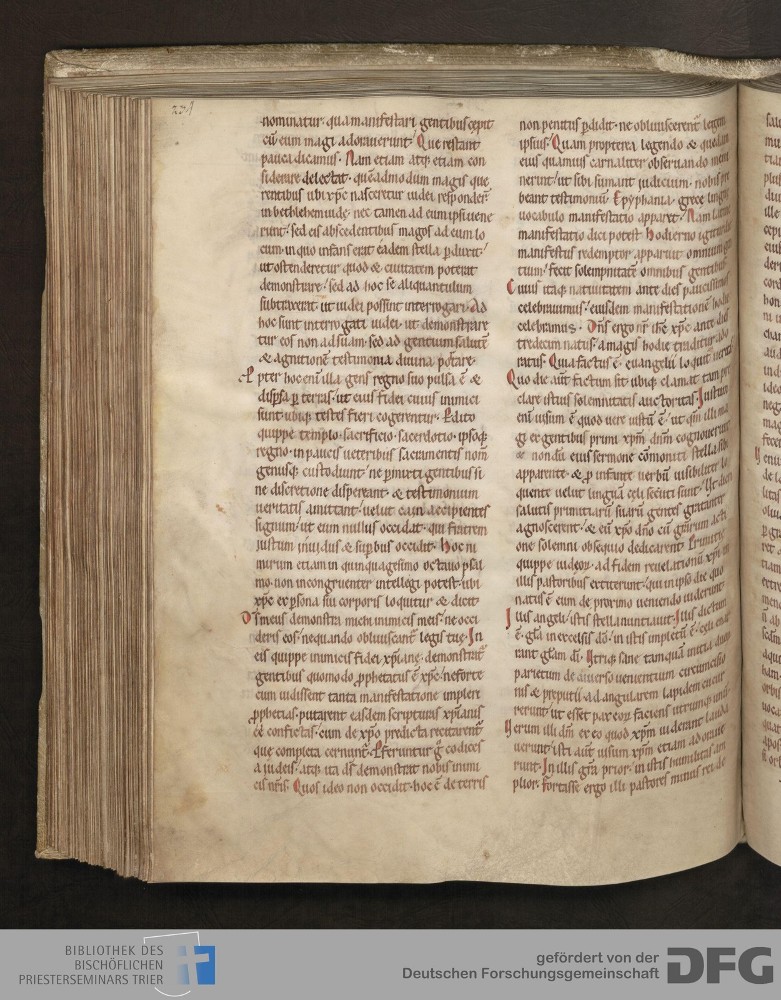 221
nominatur· quam anifestari gentibus cepit
cū eum magi adorauerunt· Que restant
pauca dicamus· Nam etiam atq; etiam con
siderare delectat· quēadmodum magis que
rentibus ubi xp̄c nasceretur iudei responder̄
in bethleem iudę· nec tamen ad eum ipsi uene
runt· sed eis abscedentibus magos ad eum lo
cum in quo infans erat eadem stella ꝑduxit·
ut ostenderetur quod & ciuitatem poterat
demonstrare· sed ad hoc se aliquantulum
subtraxerat· ut iudei possint interrogari· Ad
hoc sunt interrogati iudei· ut demonstrare
tur eos non ad suam· sed ad gentium salutē
& agnitionē testimonia diuina portare·
pter hoc enī illa gens regno suo pulsa ē &
disꝑsa ꝑ terras· ut eius fidei cuius inimici
sunt· ubiq; testes fieri cogerentur· Pdito
quippe templo· sacrificio· sacerdotio· ipsoq;
regno· in paucis ueteribus sacramentis nom̄
genusq; custodiunt· ne ꝑmixti gentibus si
ne discretione dispereant· & testimonium
ueritatis amittant· uelut cain accipientes
signum· ut eum nullus occidat· qui fratrem
iustum inuidus & suꝑbus occidit· Hoc ni
mirum etiam in quinquagesimo octauo psal
mo· non incongruenter intellegi potest· ubi
xp̄c ex ꝑsona sui corporis loquitur & dicit
Ds̄ meus demonstra michi in inimicis meis· ne occi
deris eos· nequando obliuiscant̄ legis tuę· In
eis quippe inimicis fidei xp̄ianę· demonstrat̄
gentibus quomodo ꝓphetatus ē xp̄c· ne forte
cum uidissent tanta manifestatione impleri
ꝓphetias· putarent easdem scripturas xp̄ianis
ēē confictas· cum de xp̄o predicta recitarent̄
quę completa cernunt̄· Pferuntur g̊ codices
a iudeis· atq; ita ds̄ demonstrat nobis inimi
cis nr̄is· Quos ideo non occidit· hoc ē de terris
non penitus ꝑdidit· ne obliuiscerent̄ legem
ipsius· Quam propterea legendo & quędam
eius quamuis carnaliter obseruando memi
nerint· ut sibi sumant iudicium· nobis pre
beant testimoniū· Epyphania· grece linguę
uocabulo manifestatio apparet· Nam latine
manifestatio dici potest· Hodierno igitur die
manifestus redemptor apparuit omnium gen
tium· fecit solempnitatē omnibus gentibus·
Cuius itaq; natiuitatem ante dies paucissimos
celebrauimus· eiusdem manifestationē hodie
celebramus· Dn̄s ergo nr̄ ih̄c xp̄c ante dies
tredecim natus· a magis hodie traditur ado
ratus· Quia factus ē· euangelii loquit̄ ueritas
Quo die aūt factum sit· ubiq; clamat tam pre
clare istius solemnitatis auctoritas· Iustum
enī uisum ē quod uere iustū ē· ut qm̄ illi ma
gi ex gentibus primi xp̄m dn̄m cognouerunt
& nondū eius sermone cōmoniti stella sibi
apparente· & ꝑ infante uerbū uisibiliter lo
quente uelut linguā celi secuti sunt· Ut diem
salutis primitiarū suarū gentes gratanter
agnoscerent· & eū xp̄o dn̄o cū gratiarum acti
one solemni obsequio dedicarent· Primitię
quippe iudeoꝝ ad fidem reuelationū xp̄i in
illis pastoribus extiterunt· qui in ipso die quo
natus ē eum de proximo ueniendo uiderunt·
Illis angeli· istis stella nuntiauit· Illis dictum
ē· gl̄a in excelsis dō· in istis impletū ē· celi enar
rant gl̄am di̅· Utriq; sane tamquā initia duoꝝ
parietum de diuerso uenientium circumcisio
nis & preputii· ad angularem lapidem cucur
rerunt· ut esset pax eoꝝ faciens utrumq; unū·
Uerum illi dm̄ ex eo quod xp̄m uiderant lauda
uerunt· isti aūt uisum xp̄m etiam adoraue
runt· In illis gr̄a prior· in istis humilitas am
plior· Fortasse ergo illi pastores minus rei de
BIBLIOTHEK DES
BISCHÖFLICHEN
PRIESTERSEMINARS TRIER
gefördert von der
Deutschen Forschungsgemeinschaft
DFG